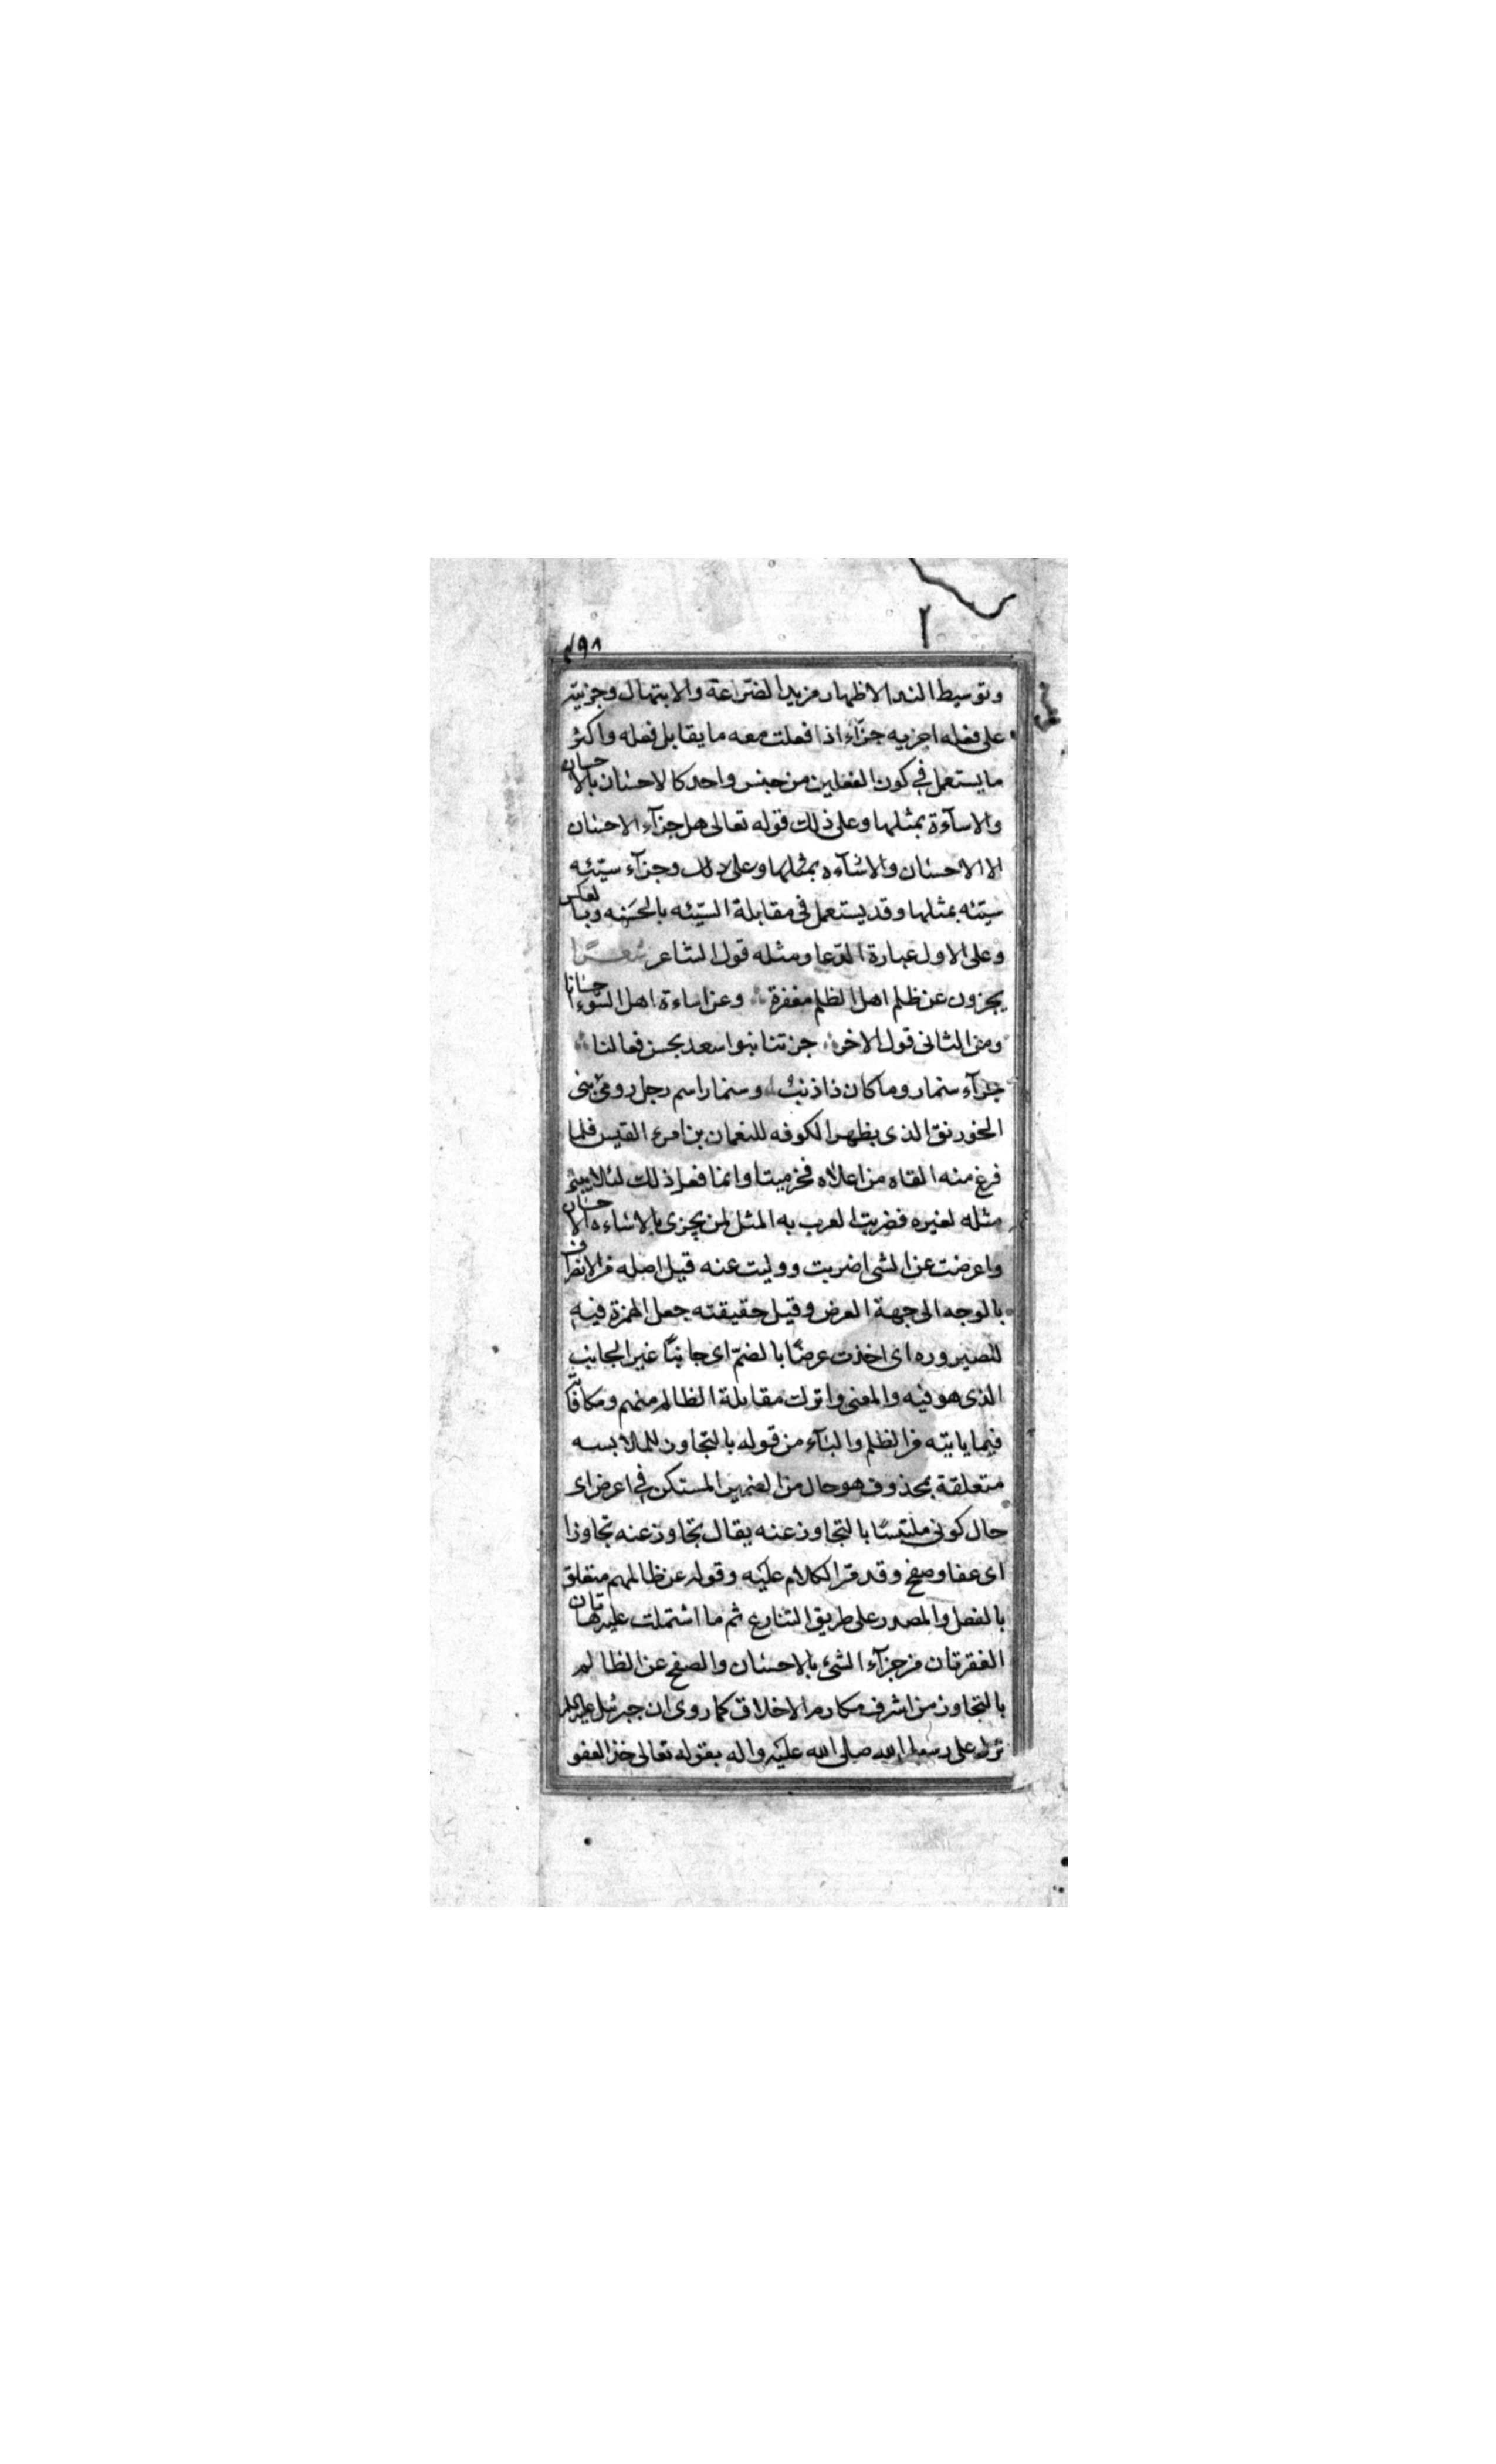 ٤٩٨
وتوسيط الندا لاظهار مزيد الضراعة والابتهال وجزيته
على فعله اجزيه جزآء اذا فعلت معه ما يقابل فعله واكثر
ما يستعمل في كون الفعلين من جنس واحد كالاحسان بالاحسان
والاسآءة بمثلها وعلى ذلك قوله تعالى هل جزآء الاحسان
الا الاحسان والاسآءه بمثلها وعلى ذلك وجزآء سيّئه
سيّئه بمثلها وقد يستعمل في مقابلة السيّئه بالحسَنه وبالعكس
وعلى الاول عبارة الدّعا ومثله قول الشاعر شعرًا
يجزون عن ظلم اهل الظلم مغفرة وعن اساءة اهل السّوء احسانا
ومن الثانى قول الاخر جزتنا بنوا سعد بحسن فعالنا
جزآء سنمار وما كان ذا ذنب وسنمار اسم رجل رومىّ بنى
الخورنق الذى بظهر الكوفه للنعمان بن امرء القيس فلما
فرغ منه القاه من اعلاه فخر ميتا وانما فعل ذلك لئلا يبنى
مثله لغيره فضربت العرب به المثل لمن يجزى بالاساءه الاحسان
واعرضت عن الشى اضربت ووليت عنه قيل اصله من الانصراف
بالوجه الى جهة العرض وقيل حقيقته جعل الهمزة فيه
للصيروره اى اخذت عرضًا بالضمّ اى جانبًا غير الجانب
الذى هو فيه والمعنى واترك مقابلة الظالم منهم ومكافاته
فيما ياتيه من الظلم والبآء من قوله بالتجاوز للملابسه
متعلقة بمحذوف هو حال من الضمير المستكن في اعرض اى
حال كونى ملتبسًا بالتجاوز عنه يقال تجاوز عنه تجاوزا
اى عفا وصفح وقد مرّ الكلام عليه وقوله عن ظالمهم متعلق
بالفعل والمصدر على طريق التنازع ثم ما اشتملت عليه هاتان
الفقرتان من جزآء الشئ بالاحسان والصفح عن الظالم
بالتجاوز من اشرف مكارم الاخلاق كما روى ان جبرئيل عليه السلم
نزل على رسول الله صلى الله عليه واله بقوله تعالى خذ العفو